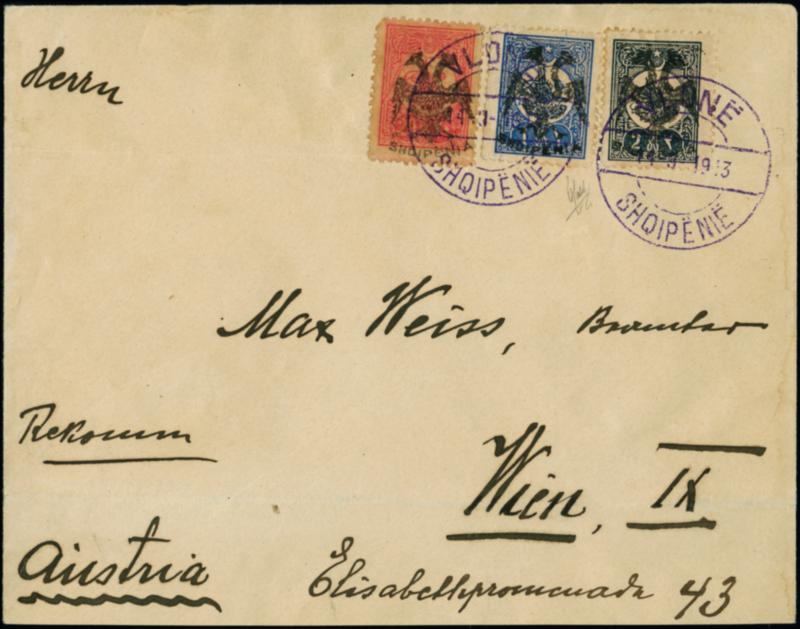 Herrn
SHQIPËNIA
SHQIPËNIA
VLONË
SHQIPËNIË
1913
SHQIPËNIË
Max Weiss, Beamter
Rekomm
Wien, IX
Austria
Elisabethpromenade 43